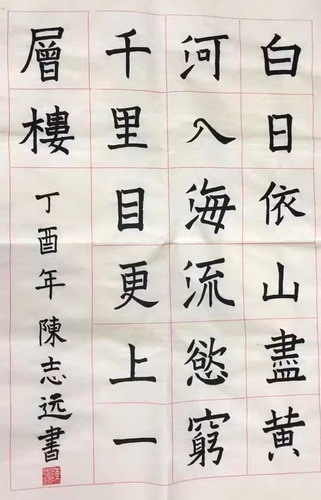 白日依山盡黄
河入海流慾窮
千里目更上一
層樓
丁酉年陳志远書